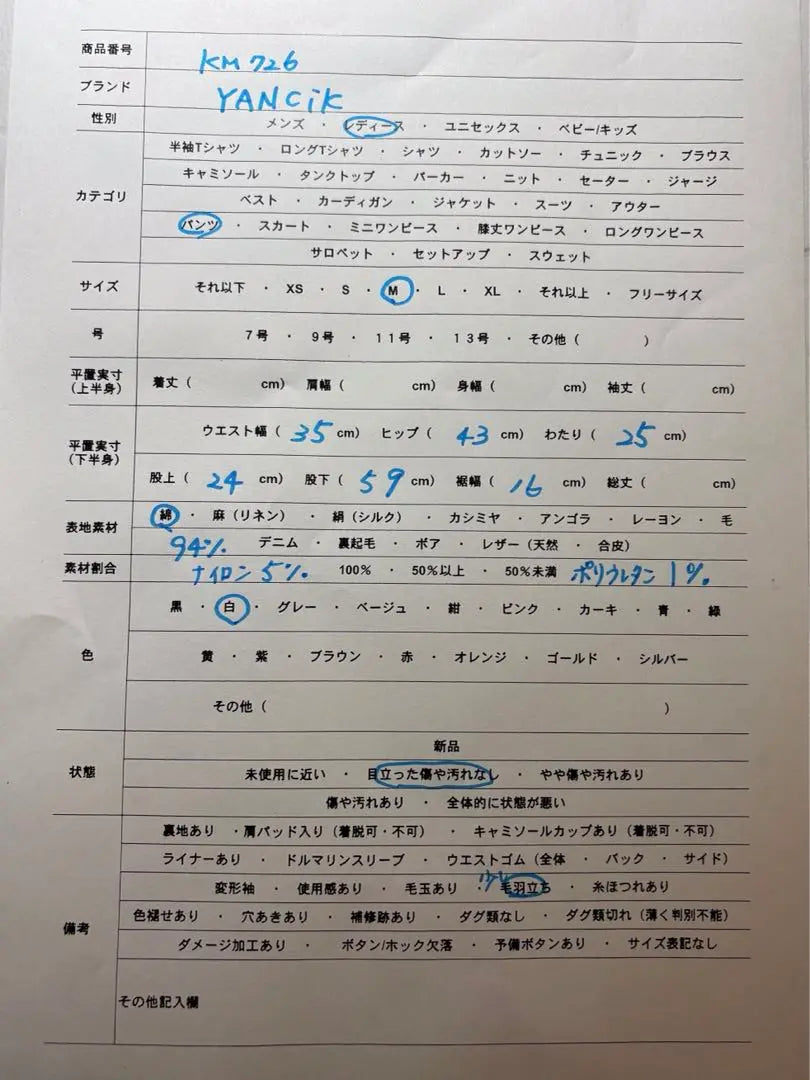 商品番号 KM726
ブランド YANCiK
性別 メンズ ・ レディース ・ ユニセックス ・ ベビー/キッズ
半袖Tシャツ ・ ロングTシャツ ・ シャツ ・ カットソー ・ チュニック ・ ブラウス
キャミソール ・ タンクトップ ・ パーカー ・ ニット ・ セーター ・ ジャージ
カテゴリ ベスト ・ カーディガン ・ ジャケット ・ スーツ ・ アウター
パンツ ・ スカート ・ ミニワンピース ・ 膝丈ワンピース ・ ロングワンピース
サロペット ・ セットアップ ・ スウェット
サイズ それ以下 ・ XS ・ S ・ M ・ L ・ XL ・ それ以上 ・ フリーサイズ
号 7号 ・ 9号 ・ 11号 ・ 13号 ・ その他 ( )
平置実寸(上半身) 着丈 ( cm) 肩幅 ( cm) 身幅 ( cm) 袖丈 ( cm)
平置実寸(下半身) ウエスト幅 ( 35 cm) ヒップ ( 43 cm) わたり ( 25 cm)
股上 ( 24 cm) 股下 ( 59 cm) 裾幅 ( 16 cm) 総丈 ( cm)
表地素材 綿 ・ 麻 (リネン) ・ 絹 (シルク) ・ カシミヤ ・ アンゴラ ・ レーヨン ・ 毛
94% デニム ・ 裏起毛 ・ ボア ・ レザー (天然 ・ 合皮)
素材割合 ナイロン 5% 100% ・ 50%以上 ・ 50%未満 ポリウレタン 1%
黒 ・ 白 ・ グレー ・ ベージュ ・ 紺 ・ ピンク ・ カーキ ・ 青 ・ 緑
色 黄 ・ 紫 ・ ブラウン ・ 赤 ・ オレンジ ・ ゴールド ・ シルバー
その他 ( )
新品
状態 未使用に近い ・ 目立った傷や汚れなし ・ やや傷や汚れあり
傷や汚れあり ・ 全体的に状態が悪い
裏地あり ・ 肩パッド入り (着脱可・不可) ・ キャミソールカップあり (着脱可・不可)
ライナーあり ・ ドルマリンスリーブ ・ ウエストゴム (全体 ・ バック ・ サイド)
変形袖 ・ 使用感あり ・ 毛玉あり ・ 少し 毛羽立ち ・ 糸ほつれあり
備考 色褪せあり ・ 穴あきあり ・ 補修跡あり ・ タグ類なし ・ タグ類切れ (薄く判別不能)
ダメージ加工あり ・ ボタン/ホック欠落 ・ 予備ボタンあり ・ サイズ表記なし
その他記入欄